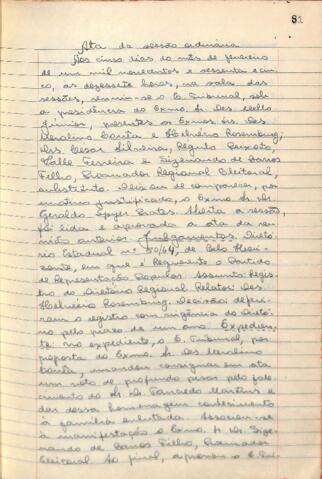 81
Ata da sessão ordinária
Aos cinco dias do mês de fevereiro
de um mil novecentos e sessenta e cin-
co, às dezessete horas, na sala das
sessões, reuniu-se o E. Tribunal, sob
a presidência do Exmo. Sr. Des. Mello
Júnior, presentes os Exmos. Srs. Des.
Merolino Corrêa e Helvécio Rosenburg;
Drs. Cesar Silveira, Régulo Peixoto,
Valle Ferreira e Sizenando de Barros
Filho, Procurador Regional Eleitoral,
substituto. Deixou de comparecer, por
motivo justificado, o Exmo. Sr. Dr.
Geraldo Spyer Prates. Aberta a sessão,
foi lida e aprovada a ata da reu-
nião anterior. Julgamentos: Diretó-
rio Estadual nº 20/64, de Belo Hori-
zonte, em que é Requerente o Partido
de Representação Popular. Assunto: Regis-
tro de Diretório Regional. Relator: Des.
Helvécio Rosenburg. Decisão: deferi-
ram o registro com vigência do Diretó-
rio pelo prazo de um ano. Expedien-
te: no expediente, o E. Tribunal, por
proposta do Exmo. Sr. Des. Merolino
Corrêa, mandou consignar em ata
um voto de profundo pesar pelo fale-
cimento do Sr. Dr. Martins e
dar dessa homenagem conhecimento
à família enlutada. Associou-se
à manifestação o Exmo. Sr. Dr. Size-
nando de Barros Filho, Procurador
Eleitoral. Ao final, aprovou o E. Tri-